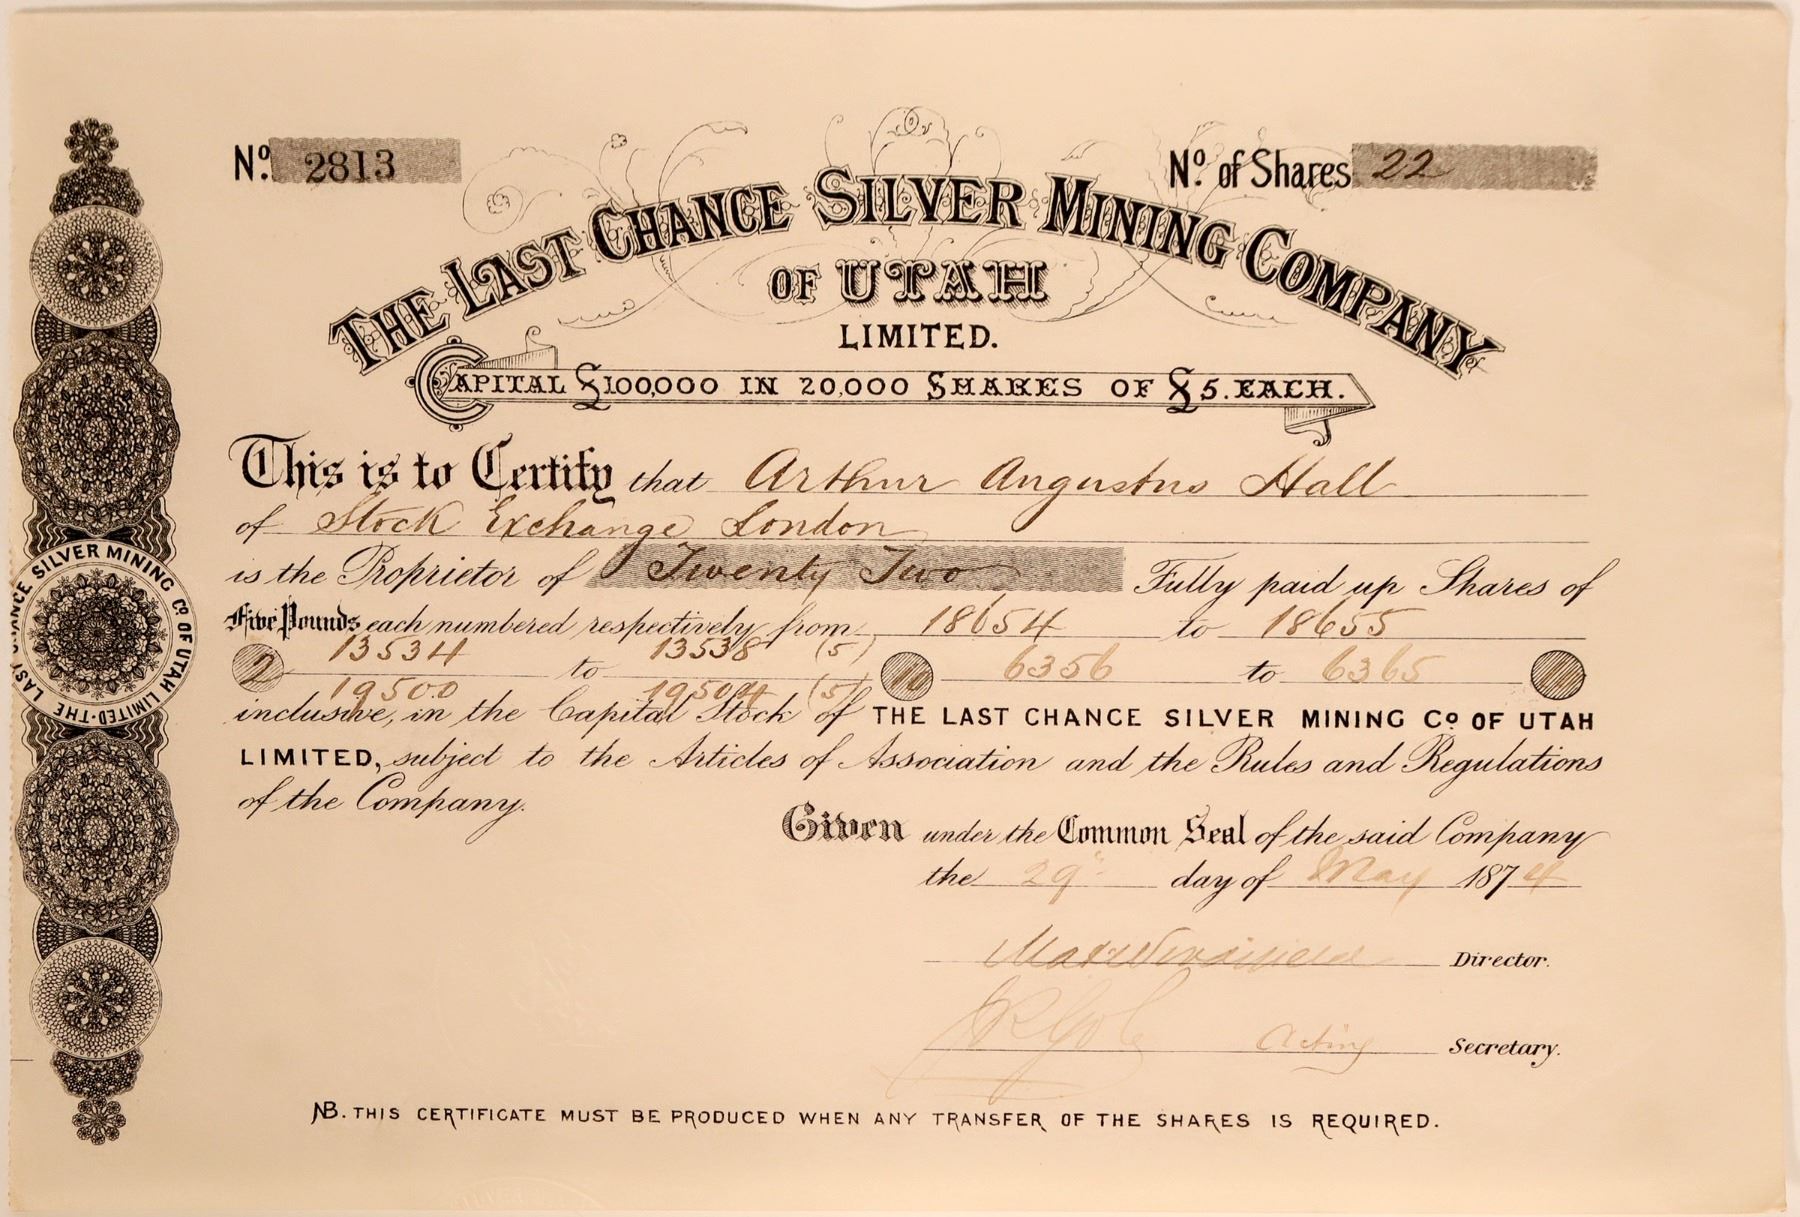 No. 2813
No. of Shares 22
THE LAST CHANCE SILVER MINING COMPANY
OF UTAH
LIMITED.
CAPITAL £100,000 IN 20,000 SHARES OF £5. EACH.
This is to Certify that Arthur Augustus Hall
of Stock Exchange London
is the Proprietor of Twenty Two Fully paid up Shares of
Five Pounds each numbered respectively from 18654 to 18655
13534 13538 (5)
2 to 10 6356 to 6365 10
19500 19504 (5)
inclusive, in the Capital Stock of THE LAST CHANCE SILVER MINING Co OF UTAH
LIMITED, subject to the Articles of Association and the Rules and Regulations
of the Company.
Given under the Common Seal of the said Company
the 29" day of May 1874
Director.
Acting Secretary.
NB. THIS CERTIFICATE MUST BE PRODUCED WHEN ANY TRANSFER OF THE SHARES IS REQUIRED.
THE LAST CHANCE SILVER MINING Co OF UTAH LIMITED.